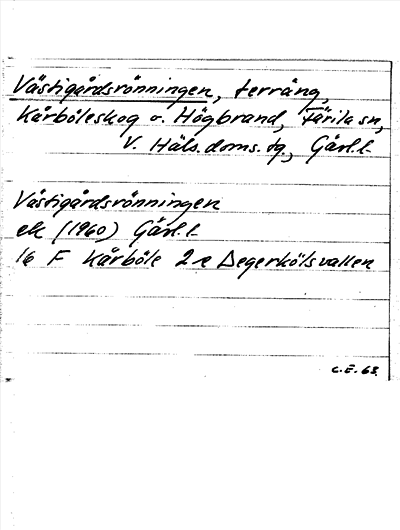 Västigårdsrönningen, terräng,
Kårböleskog o. Högbrand, Färila sn,
V. Häls. doms. tg., Gävl. l.
Västigårdsrönningen
ek (1960) Gävl. l.
16 F Kårböle 2 e Degerkölsvallen
C.E. 63.